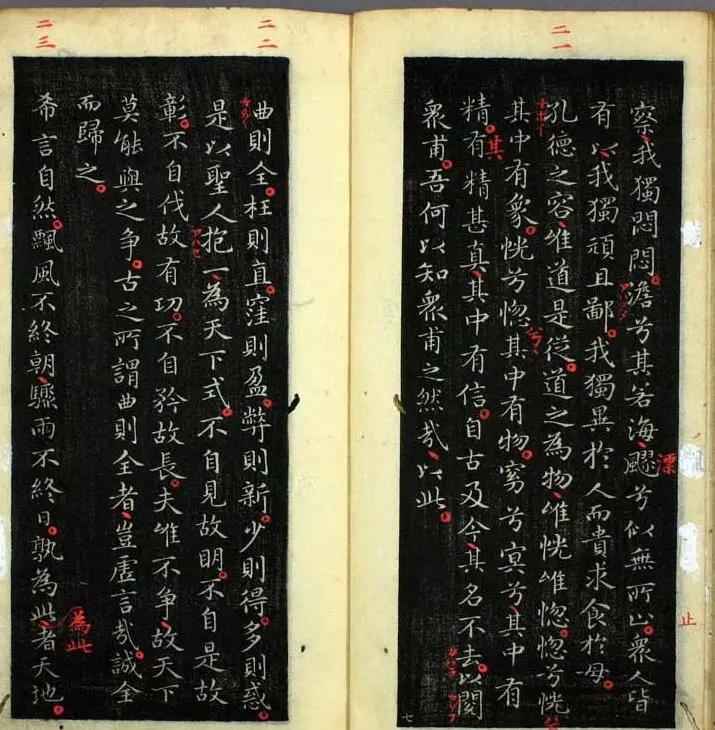 二一
察我獨悶悶澹兮其若海飂兮似無所止衆人皆
漂
止
有以我獨頑且鄙我獨異於人而貴求食於母
孔德之容唯道是從道之為物唯恍唯惚惚兮恍
兮
其中有象恍兮惚其中有物窈兮冥兮其中有
其
精有精甚真其中有信自古及今其名不去以閱
衆甫吾何以知衆甫之然哉以此
七
二二
曲則全枉則直窪則盈弊則新少則得多則惑
是以聖人抱一為天下式不自見故明不自是故
彰不自伐故有功不自矜故長夫唯不争故天下
莫能與之争古之所謂曲則全者豈虛言哉誠全
而歸之
二三
希言自然飄風不終朝驟雨不終日孰為此者天地
為此